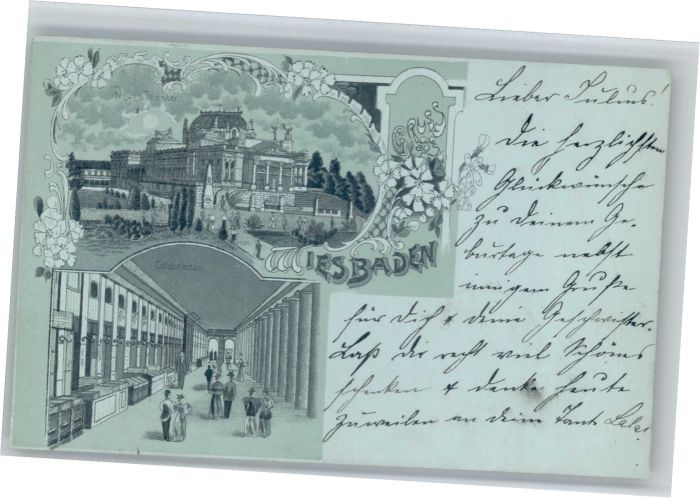 Neues Theater
GRUSS
aus
WIESBADEN
Colonnaden
Lieber Julius!
Die herzlichsten
Glückwünsche
zu Deinem Ge-
burtage nebst
innigem Gruße
für Dich & deine Geschwister.
Laß dir recht viel Schönes
schenken & denke heute
zuweilen an deine Tante Lala.